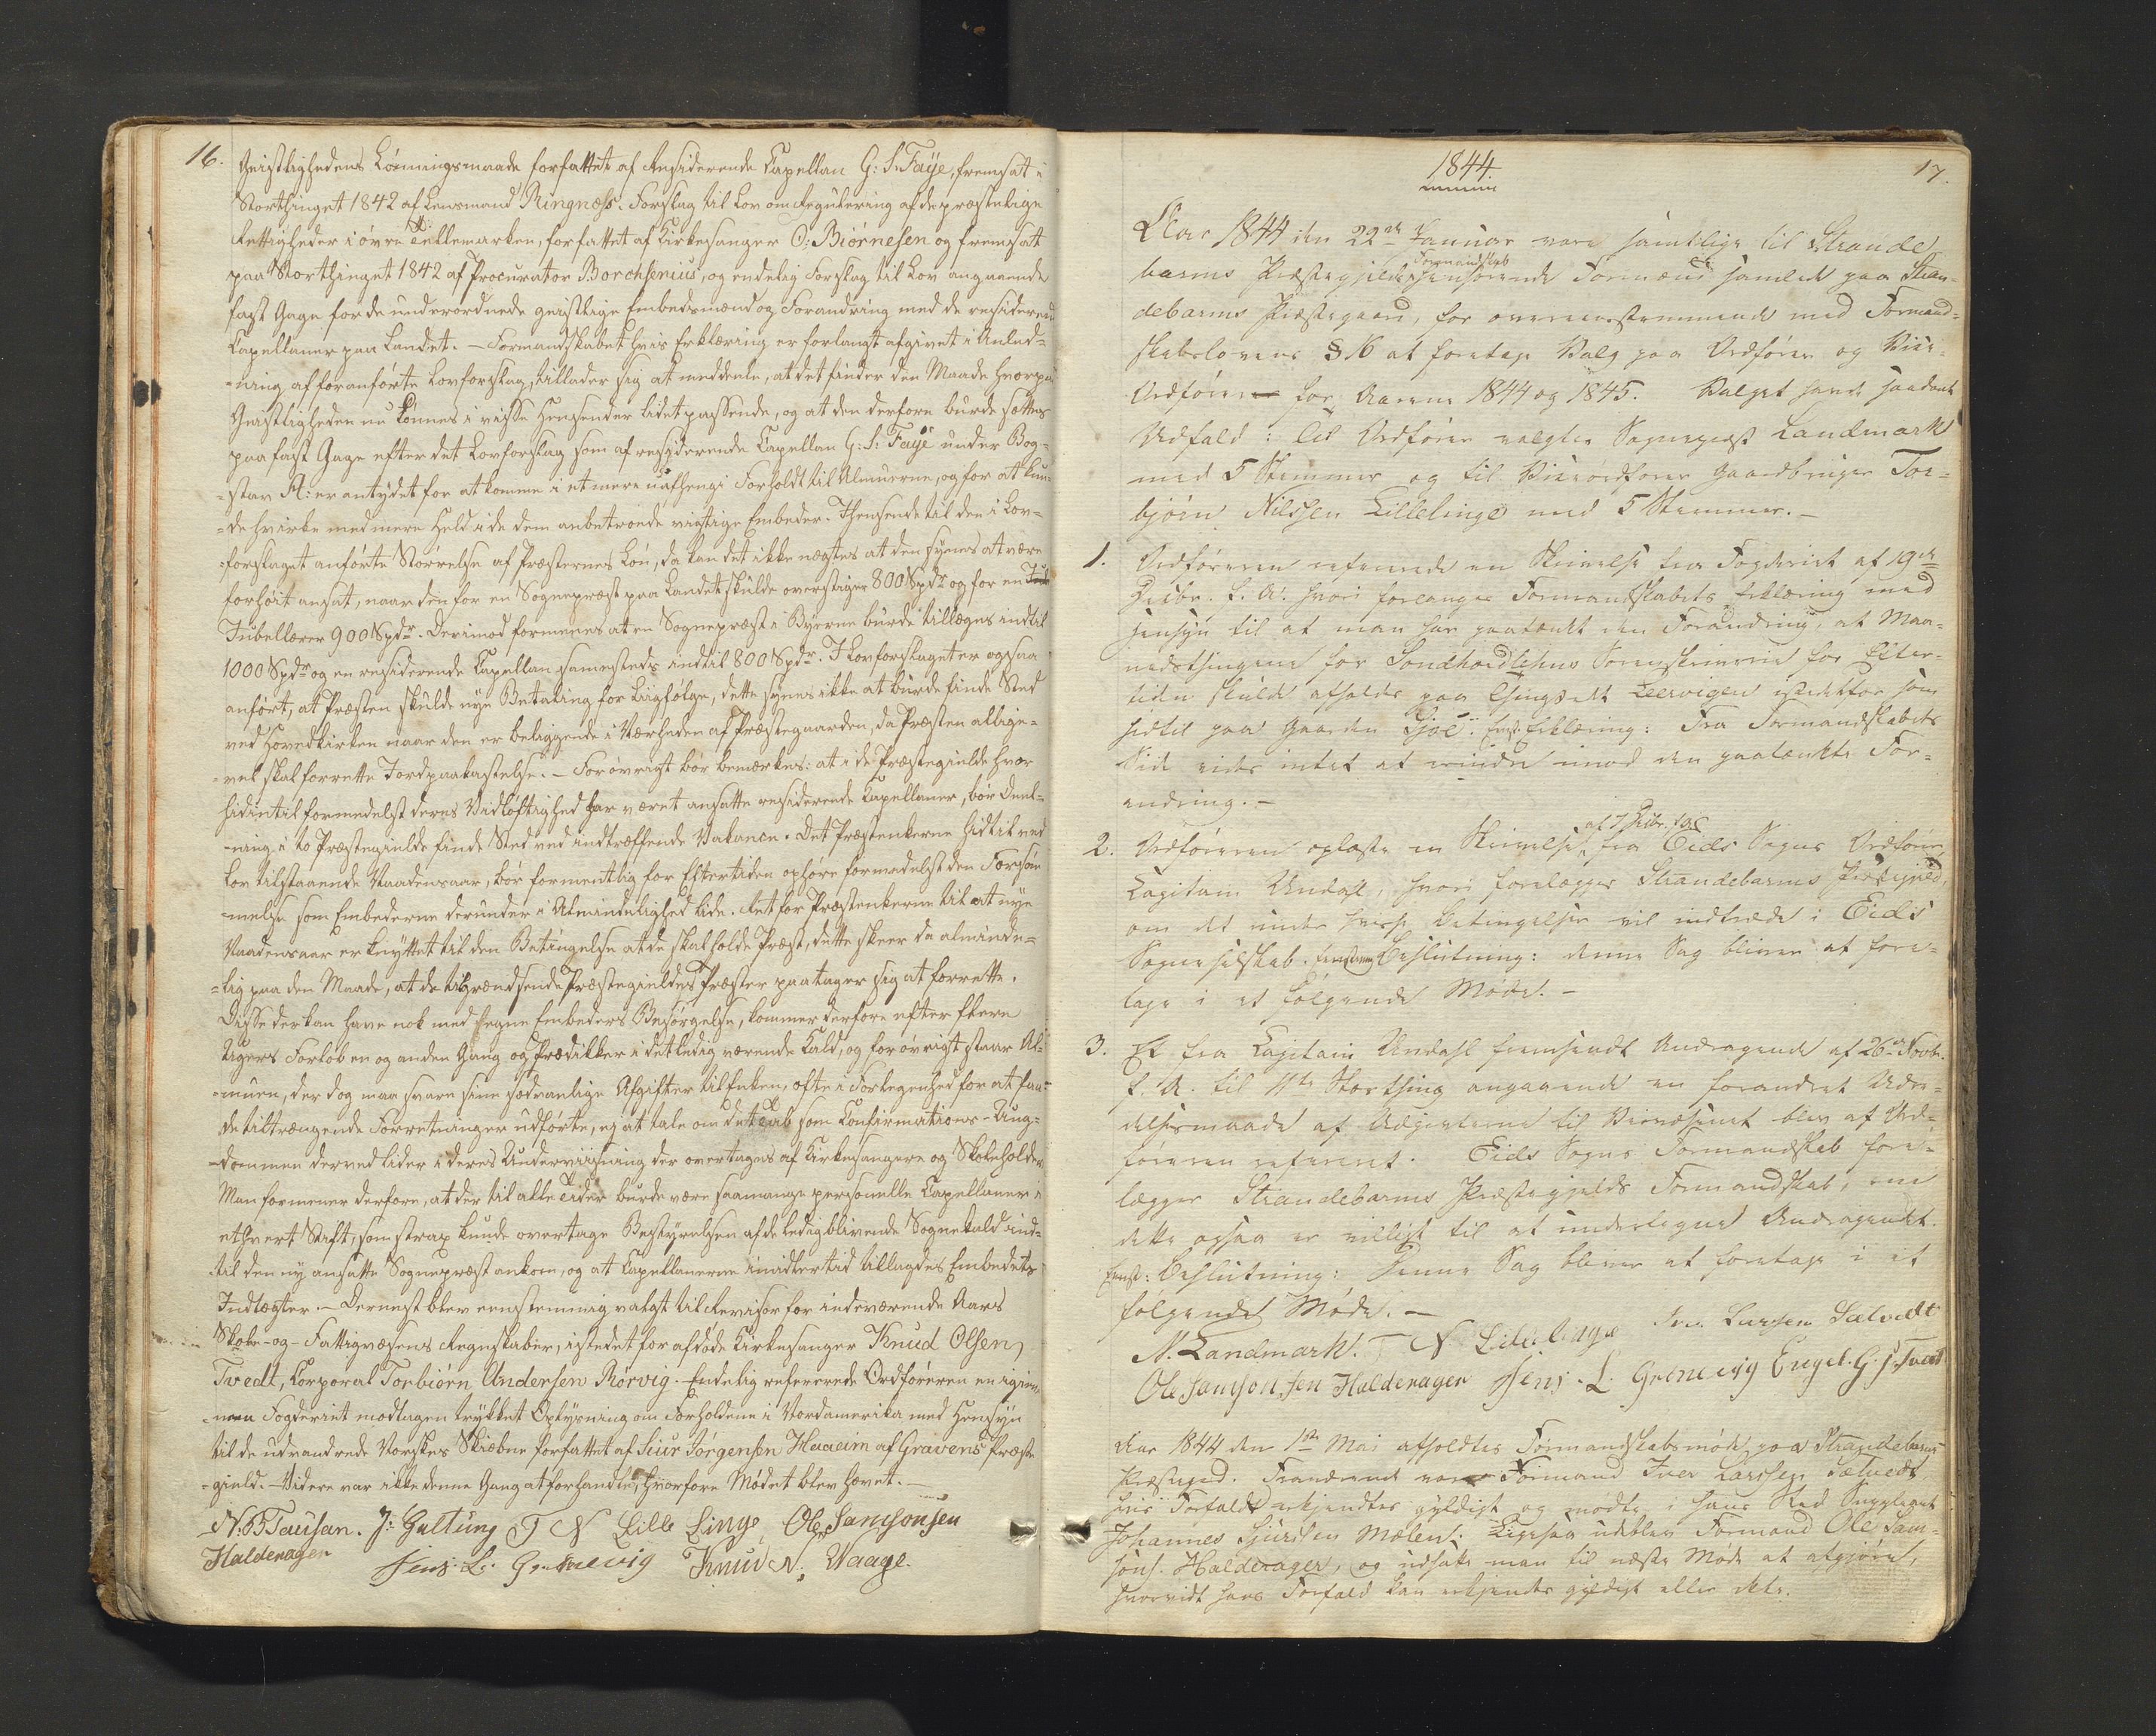 16.
Geistlighedens Lønningsmaade forfattet af residerende Capellan G: S. Faÿe, fremsat i
Storthinget 1842 af Lensmand Ringnæss. Forslag til Lov om Regulering af de præstelige
Rettigheder i øvre Tellemarken, forfattet af Kirkesanger O: Biørnesen og fremsat
paa Storthinget 1842 af Procurator Borchsenius, og endelig Forslag til Lov angaaende
fast Gage for de underordnede geistlige Embedsmænd og Forandring med de residerende
Capellaner paa Landet. – Formandskabet hvis Erklæring er forlangt afgivet i Anled-
-ning af foranførte Lovforslag, tillader sig at meddele, at det finder den Maade hvorpaa
Geistligheden nu lønnes i visse Henseender lidet passende, og at den derfore burde sættes
paa fast Gage efter det Lovforslag som af residerende Capellan G: S: Faÿe under Bog-
-stav A: er antydet for at komme i et mere uafhengi Forholdt til Almuerne, og for at kun-
-de hvirke med mere Held i de dem anbetroede vigtige Embeder. Henseende til den i Lov-
-forslaget anførte Størrelse af Præsternes Løn, da kan det ikke nægtes at den synes at være
forhøit ansat, naar den for en Sognepræst paa Landet skulde overstiger 800 Spdr og for en
Jubellærer 900 Spdr. Derimod formenes at en Sognepræst i Byerne burde tillægges indtil
1000 Spdr og en residerende Capellan sammesteds indtil 800 Spdr. I Lovforslaget er ogsaa
anført, at Præsten skulde nye Betaling for Liigfølge, dette synes ikke at burde finde Sted
ved Hovedkirken naar den er beliggende i Nærheden af Præstegaarden, da Præsten allige-
-vel skal forrette Jordpaakastelse. – Forøvrigt bør bemærkes: at i de Præstegielde hvor
hidintil formedelst deres Vidløftighed har været ansatte residerende Capellaner, bør Deel-
-ning i to Præstegielde finde Sted ved indtræffende Vakance. Det Præsteenkerne hidtil ved
Lov tilstaaende Naadensaar, bør formentlig for Eftertiden ophøre formedelst den Forsøm-
-melse som Embederne derunder i Almindelighed lide. Ret for Præsteenkerne til at nye
Naadensaar er knyttet til den Betingelse at de skal holde Præst, dette skeer da alminde-
-lig paa den Maade, at de tilgrændsende Præstegieldes Præster paatager sig at forrette.
Disse der kan have nok med egne Embeders Besørgelse, kommer derfore efter flere
Ugers Forløb en og anden Gang og Prædikker i det ledig værende Kald, og forøvrigt staar Al-
-muen, der dog maa svare sine sædvanlige Afgifter til Enken, ofte i Forlegenhed for at faa
de tiltrængende Forretninger udførte, ej at tale om det Tab som Confirmations-Ung-
-dommen derved lider i deres Underviisning der overtages af Kirkesangere og Skoleholder
Man formener derfore, at der til alle Tider burde være saamange personelle Capellaner i
ethvert Stift, som strax kunde overtage Bestyrelsen af de ledigblivende Sognekald ind-
til den ny ansatte Sognepræst ankom, og at Capellanerne imidlertid tillagdes Embedets
Indtægter. – Dernest blev eenstemmig valgt til Revisor for indeværende Aars
Skole- og Fattigvæsens Regnskaber, istedet for afdøde Kirkesanger Knud Olsen
Tvedt, Korporal Torbiørn Andersen Rørvig. Endelig refererede Ordføreren en igien-
-nem Fogderiet modtagen trykket Oplysning om Forholdene i Nordamerika med Hensyn
til de udvandrede Norskes Skiæbne forfattet af Siur Jørgensen Haaeim af Gravens Præste-
-gield. – Videre var ikke denne Gang at forhandles, hvorfore Mødet blev hævet. –
N. B Tausan. J: Galtung T N Lille Linge Ole Samsonsen
Haldenagen Jens. L: Gravnevig Knud N: Waage.
1844.
17.
Aar 1844 den 22de Januar vare samtlige til Strande
barms Præstegjelds Formandskab henhørende Formænd samlede paa Stran-
debarms Præstegaard, for overeensstemmende med Formand-
skabslovens § 16 at foretage Valg paa Ordfører og Vice-
Ordfører for Aarene 1844 og 1845. Valget havde saadant
Udfald: til Ordfører valgtes Sognepræst Landmark
med 5 Stemmer og til Viceordfører Gaardbruger Tor-
bjørn Nilssen Lillelinge med 5 Stemmer. –
1. Ordføreren refererede en Skrivelse fra Fogderiet af 19de
Decbr. f. A. hvori forlanges Formandskabets Erklæring med
Hensyn til at man har paatænkt den Forandring, at Maa-
nedsthingene for Søndhordlehns Sorenskriverie for Efter-
tiden skulde afholdes paa Thingstedt Leervigen istedetfor som
hidtil paa Gaarden Gjøe. Erklæring: Fra Formandskabets
Side vides intet at erindre imod den paatænkte For-
andring. –
2. Ordføreren oplæste en Skrivelse fra Eids Sogns Ordfører
Capitain Undahl, hvori forelægges Strandebarms Præstegjeld,
om det under hvisse Betingelser vil indtræde i Eids
Sogneselskab. Beslutning: denne Sag bliver at fore-
tage i et følgende Møde. –
3. Et fra Capitain Undahl fremsendt Andragende af 26de Novbr.
f. A. til 11te Storthing angaaende en forandret Udre-
delsesmaade af Udgifterne til Veivæsenet blev af Ord-
føreren refereret. Eids Sogns Formandskab fore-
lægger Strandebarms Præstegjelds Formandskab, om
dette ogsaa er villigt til at undertegne Andragendet.
Beslutning: Denne Sag bliver at foretage i et
følgende Møde. –
N. Landmark. T N Lille Linge Iver Larssen Sælvedt
Ole Samsonsen Haldenagen Jens. L. Gravnevig Engel. G. J. Tvedt
Aar 1844 den 1ste Mai afholdtes Formandskabsmøde paa Strandebarms
Præstegrd. Fraværende var Formand Iver Larssen Sætvedt,
hvis Forfald erkjendtes gyldigt og mødte i hans Sted Suppleant
Johannes Sjursen Mælen. Ligesaa udeblev Formand Ole Sam-
sons. Haldenager, og udsatte man til næste Møde at afgjøre,
hvorvidt hans Forfald kan erkjendes gyldigt eller ikke.